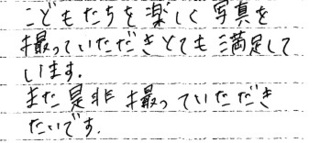 こどもたちを楽しく写真を
撮っていただきとても満足して
います.
また是非撮っていただき
たいです.